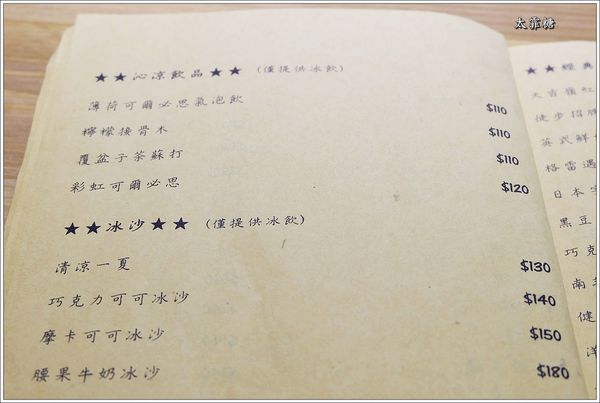 太霏糖
★★沁涼飲品★★ (僅提供冰飲)
薄荷可爾必思氣泡飲 $110
檸檬接骨木 $110
覆盆子茶蘇打 $110
彩虹可爾必思 $120
★★冰沙★★ (僅提供冰飲)
清涼一夏 $130
巧克力可可冰沙 $140
摩卡可可冰沙 $150
腰果牛奶冰沙 $180
★★經典
大吉嶺紅
徒步招牌
英式鮮
格雷遇
日本宇
黑豆
巧克
南
健
洋